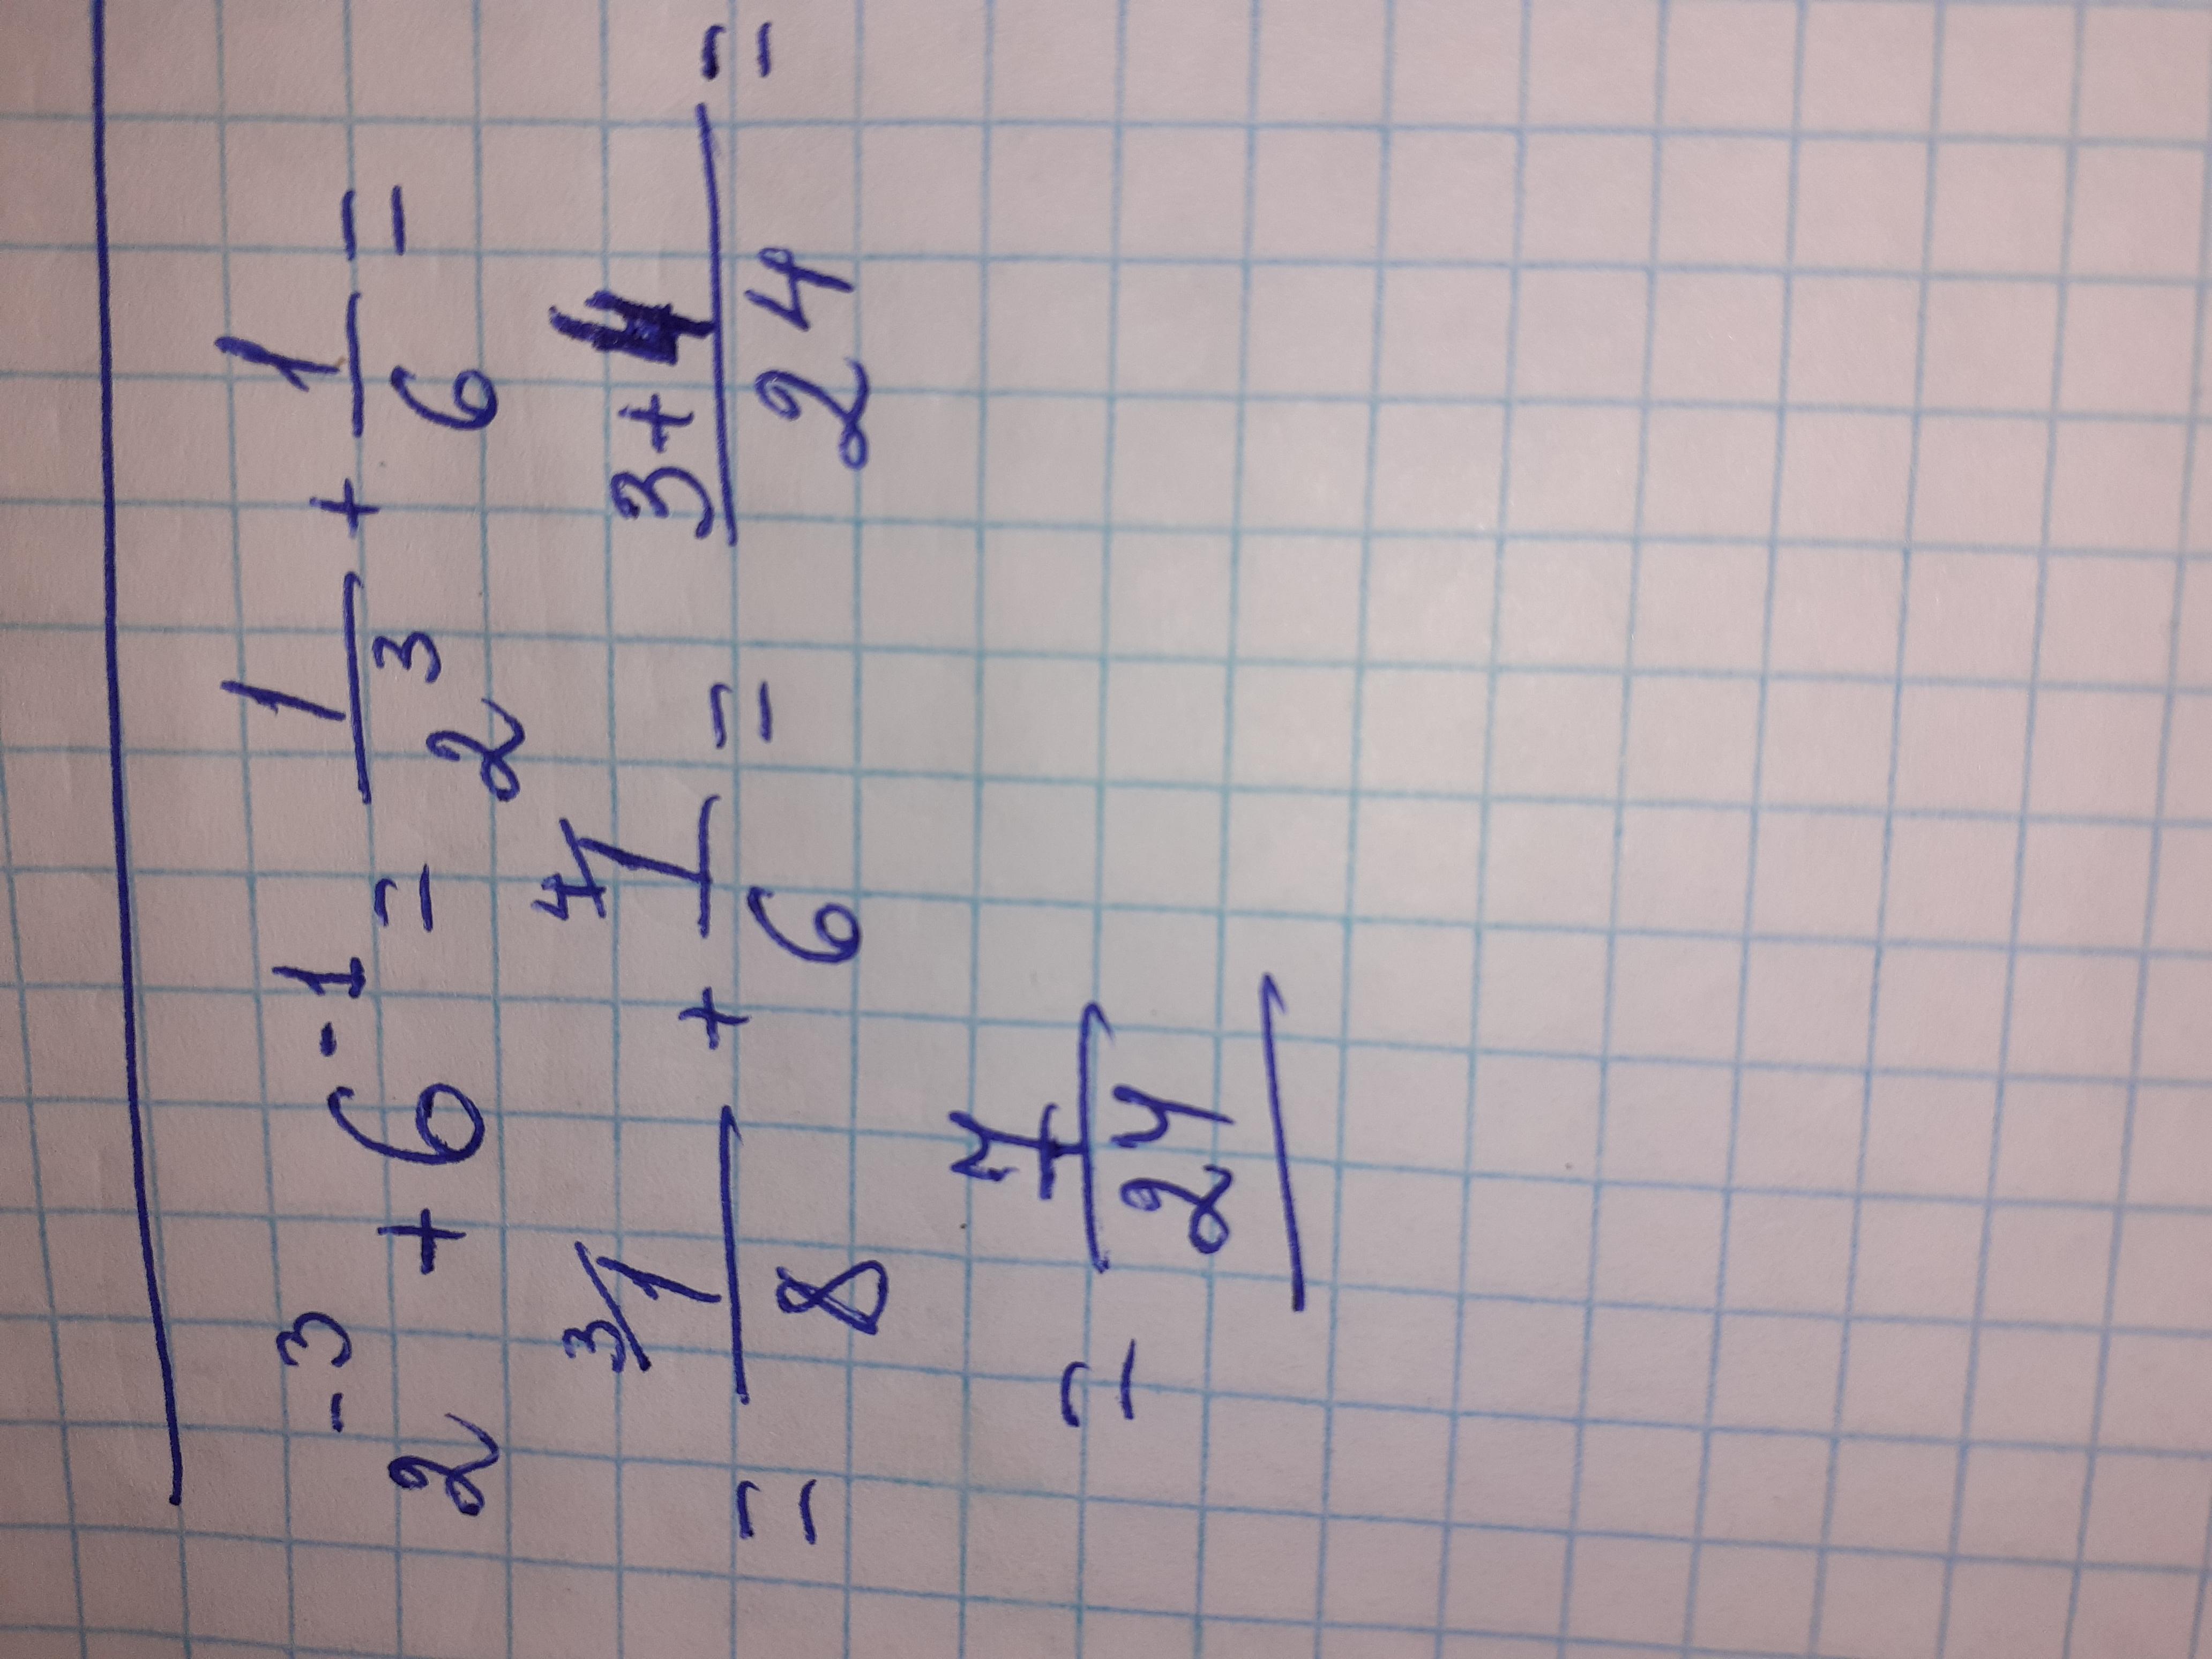 2⁻³ + 6⁻¹ = 1/2³ + 1/6 =
= ³⁄1/8 + ⁴⁄1/6 = 3+4/24 =
= 7/24